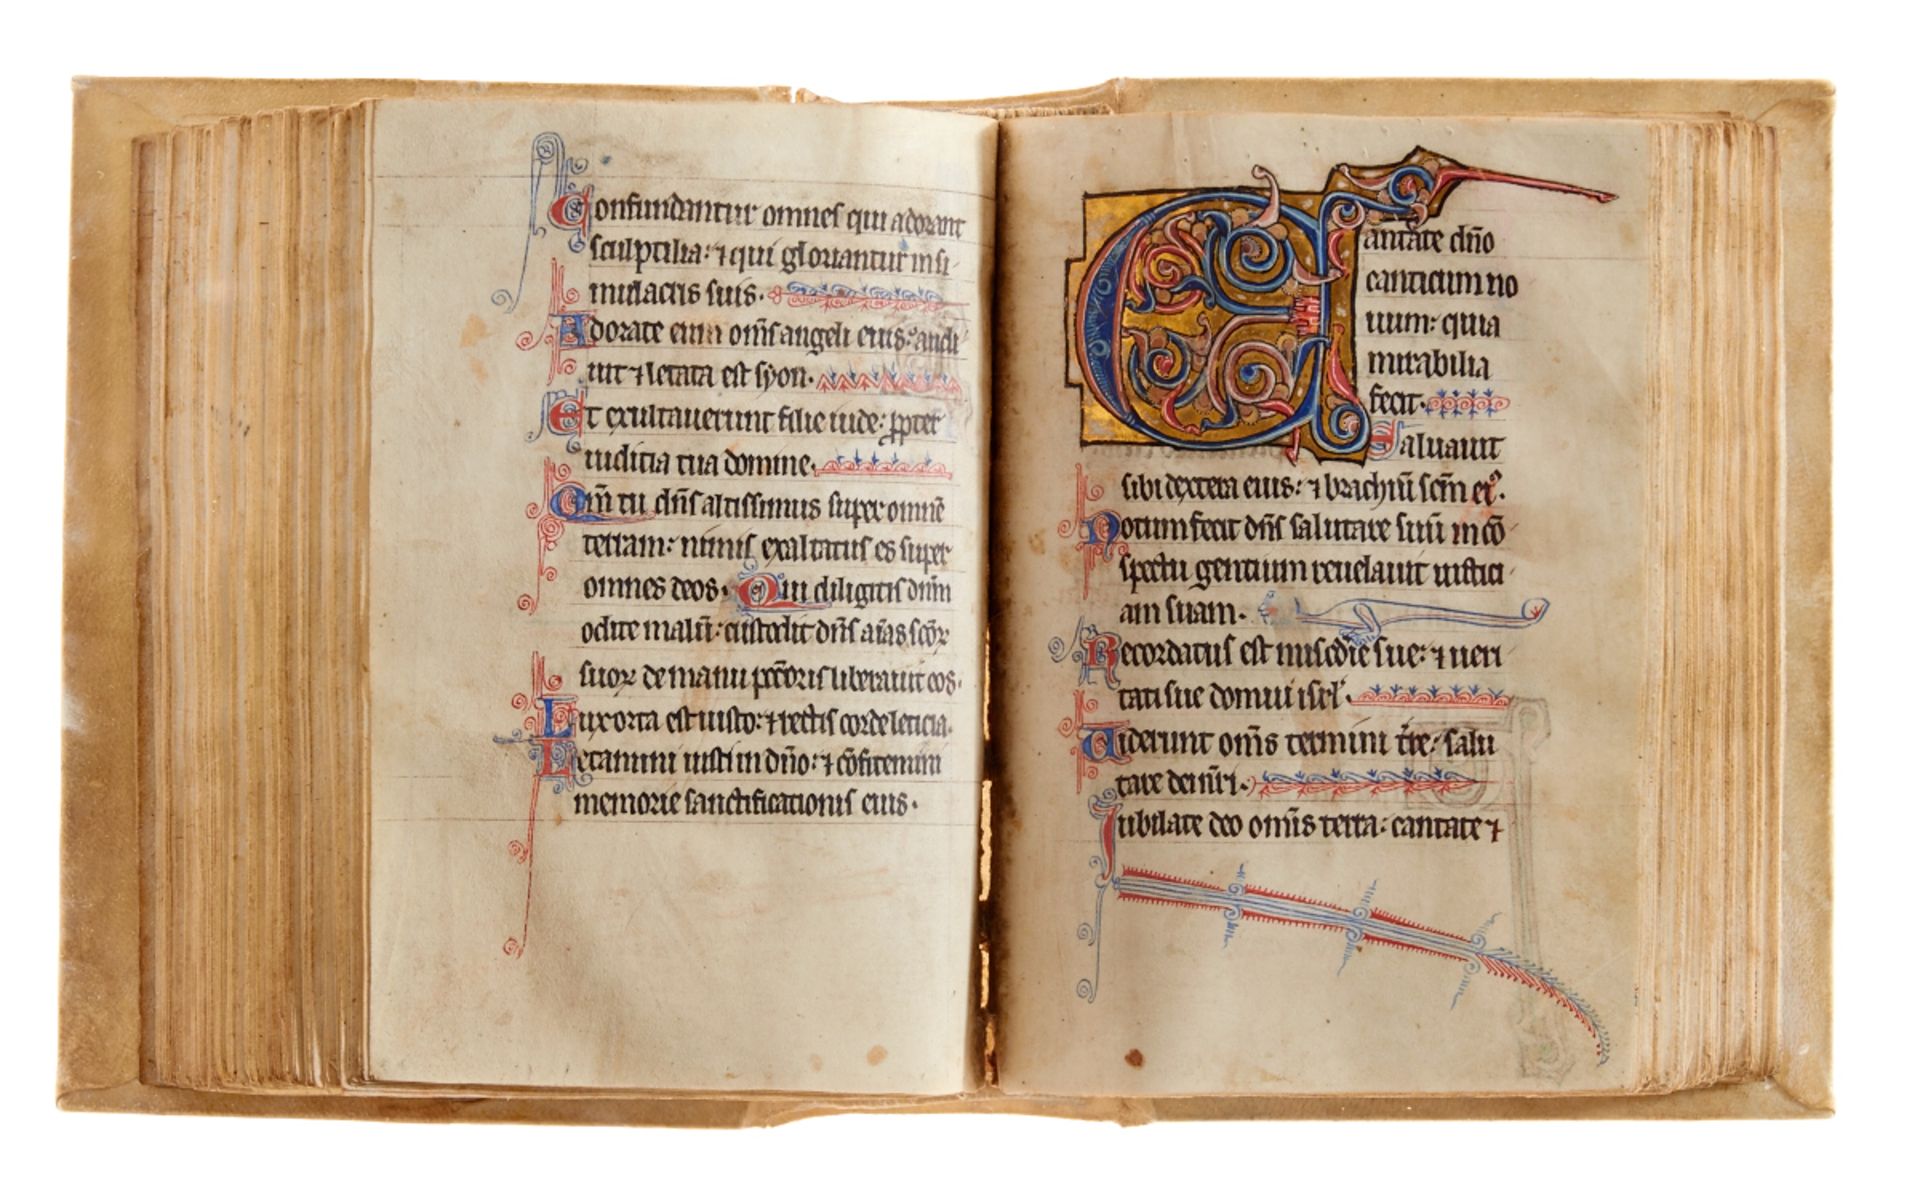 Confundantur omnes qui adorant
sculptilia: ⁊ qui gloriantur in si-
mulacris suis.
Adorate eum om̄s angeli eius: audi-
uit ⁊ letata est syon.
Et exultauerunt filie iude: ꝓpter
iudicia tua domine.
Qm̄ tu dn̄s altissimus super omnē
terram: nimis exaltatus es super
omnes deos. Qui diligitis dnm̄
odite malū: custodit dn̄s aīas scōꝝ
suoꝝ de manu pcc̄oris liberauit eos.
Lux orta est iusto: ⁊ rectis corde leticia.
Letamini iusti in dn̄o: ⁊ cōfitemini
memorie sanctificationis eius.
Cantate dn̄o
canticum no
uum: quia
mirabilia
fecit.
Saluauit
sibi dextera eius: ⁊ brachiū scm̄ ei⁹.
Notum fecit dn̄s salutare suū in cō-
spectu gentium reuelauit iustici-
am suam.
Recordatus est mis̄cdie sue: ⁊ ueri-
tati sue domui isrl̄.
Uiderunt om̄s termini tr̄e: salu
tare dei nr̄i.
Iubilate deo om̄is terra: cantate ⁊